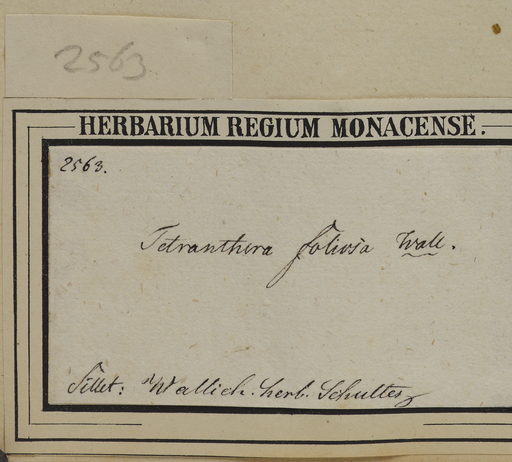 2563
HERBARIUM REGIUM MONACENSE.
2563.
Tetranthera foliosa Wall.
Sillet: Wallich. herb. Schultes